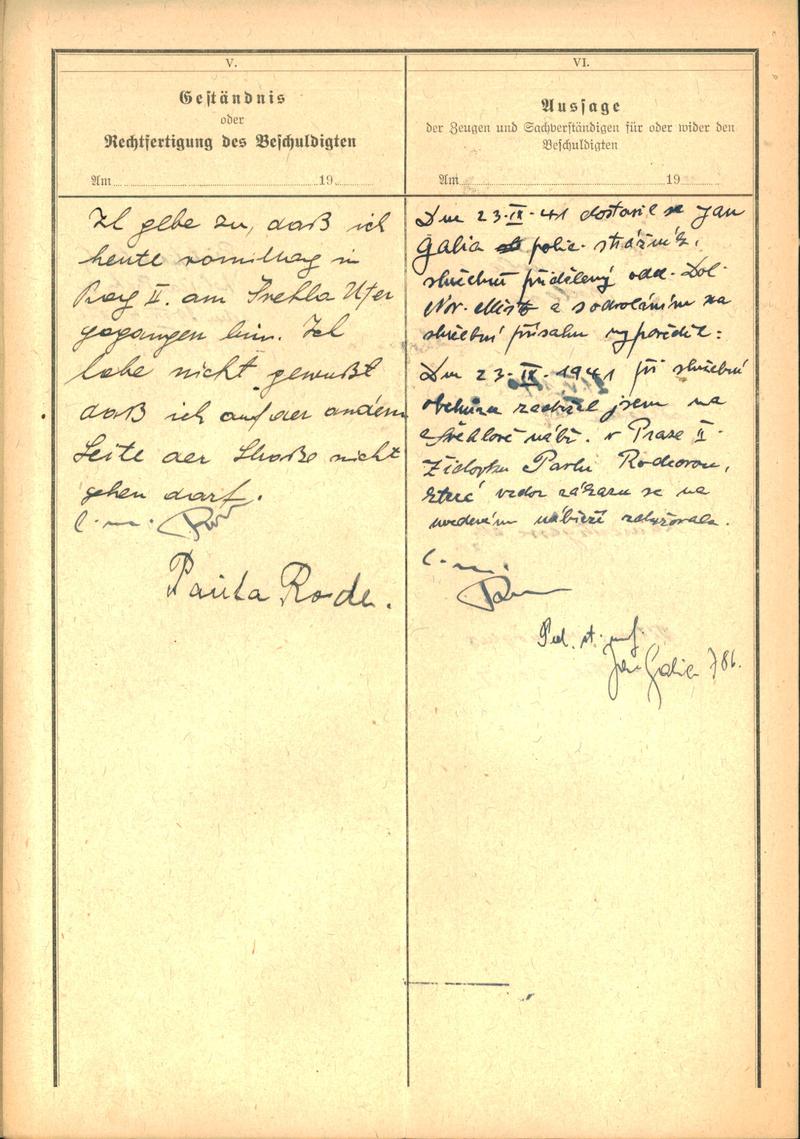 V.
Geständnis
oder
Rechtfertigung des Beschuldigten
Am 19
Ich gebe zu, daß ich
heute vormittag in
Prag II. am Švehla Ufer
gegangen bin. Ich
habe nicht gewußt
daß ich auf der andern
Seite der Straße nicht
gehen darf.
Paula Rode.
VI.
Aussage
der Zeugen und Sachverständigen für oder wider den
Beschuldigten
Am 19
Dne 23.IX.41 dostavil se Jan
Galia polic. strážník,
služebně přidělený odd. Dol.
Nov. Město a s odvoláním na
služební přísahu vypověděl:
Dne 23.IX.1941 při služební
obchůzce zadržel jsem na
Švehlově nábř. v Praze II.
židovku Pavlu Rodeovou,
která vzdor zákazu se na
uvedeném nábřeží zdržovala.
Pol. st.
Jan Galia 786.